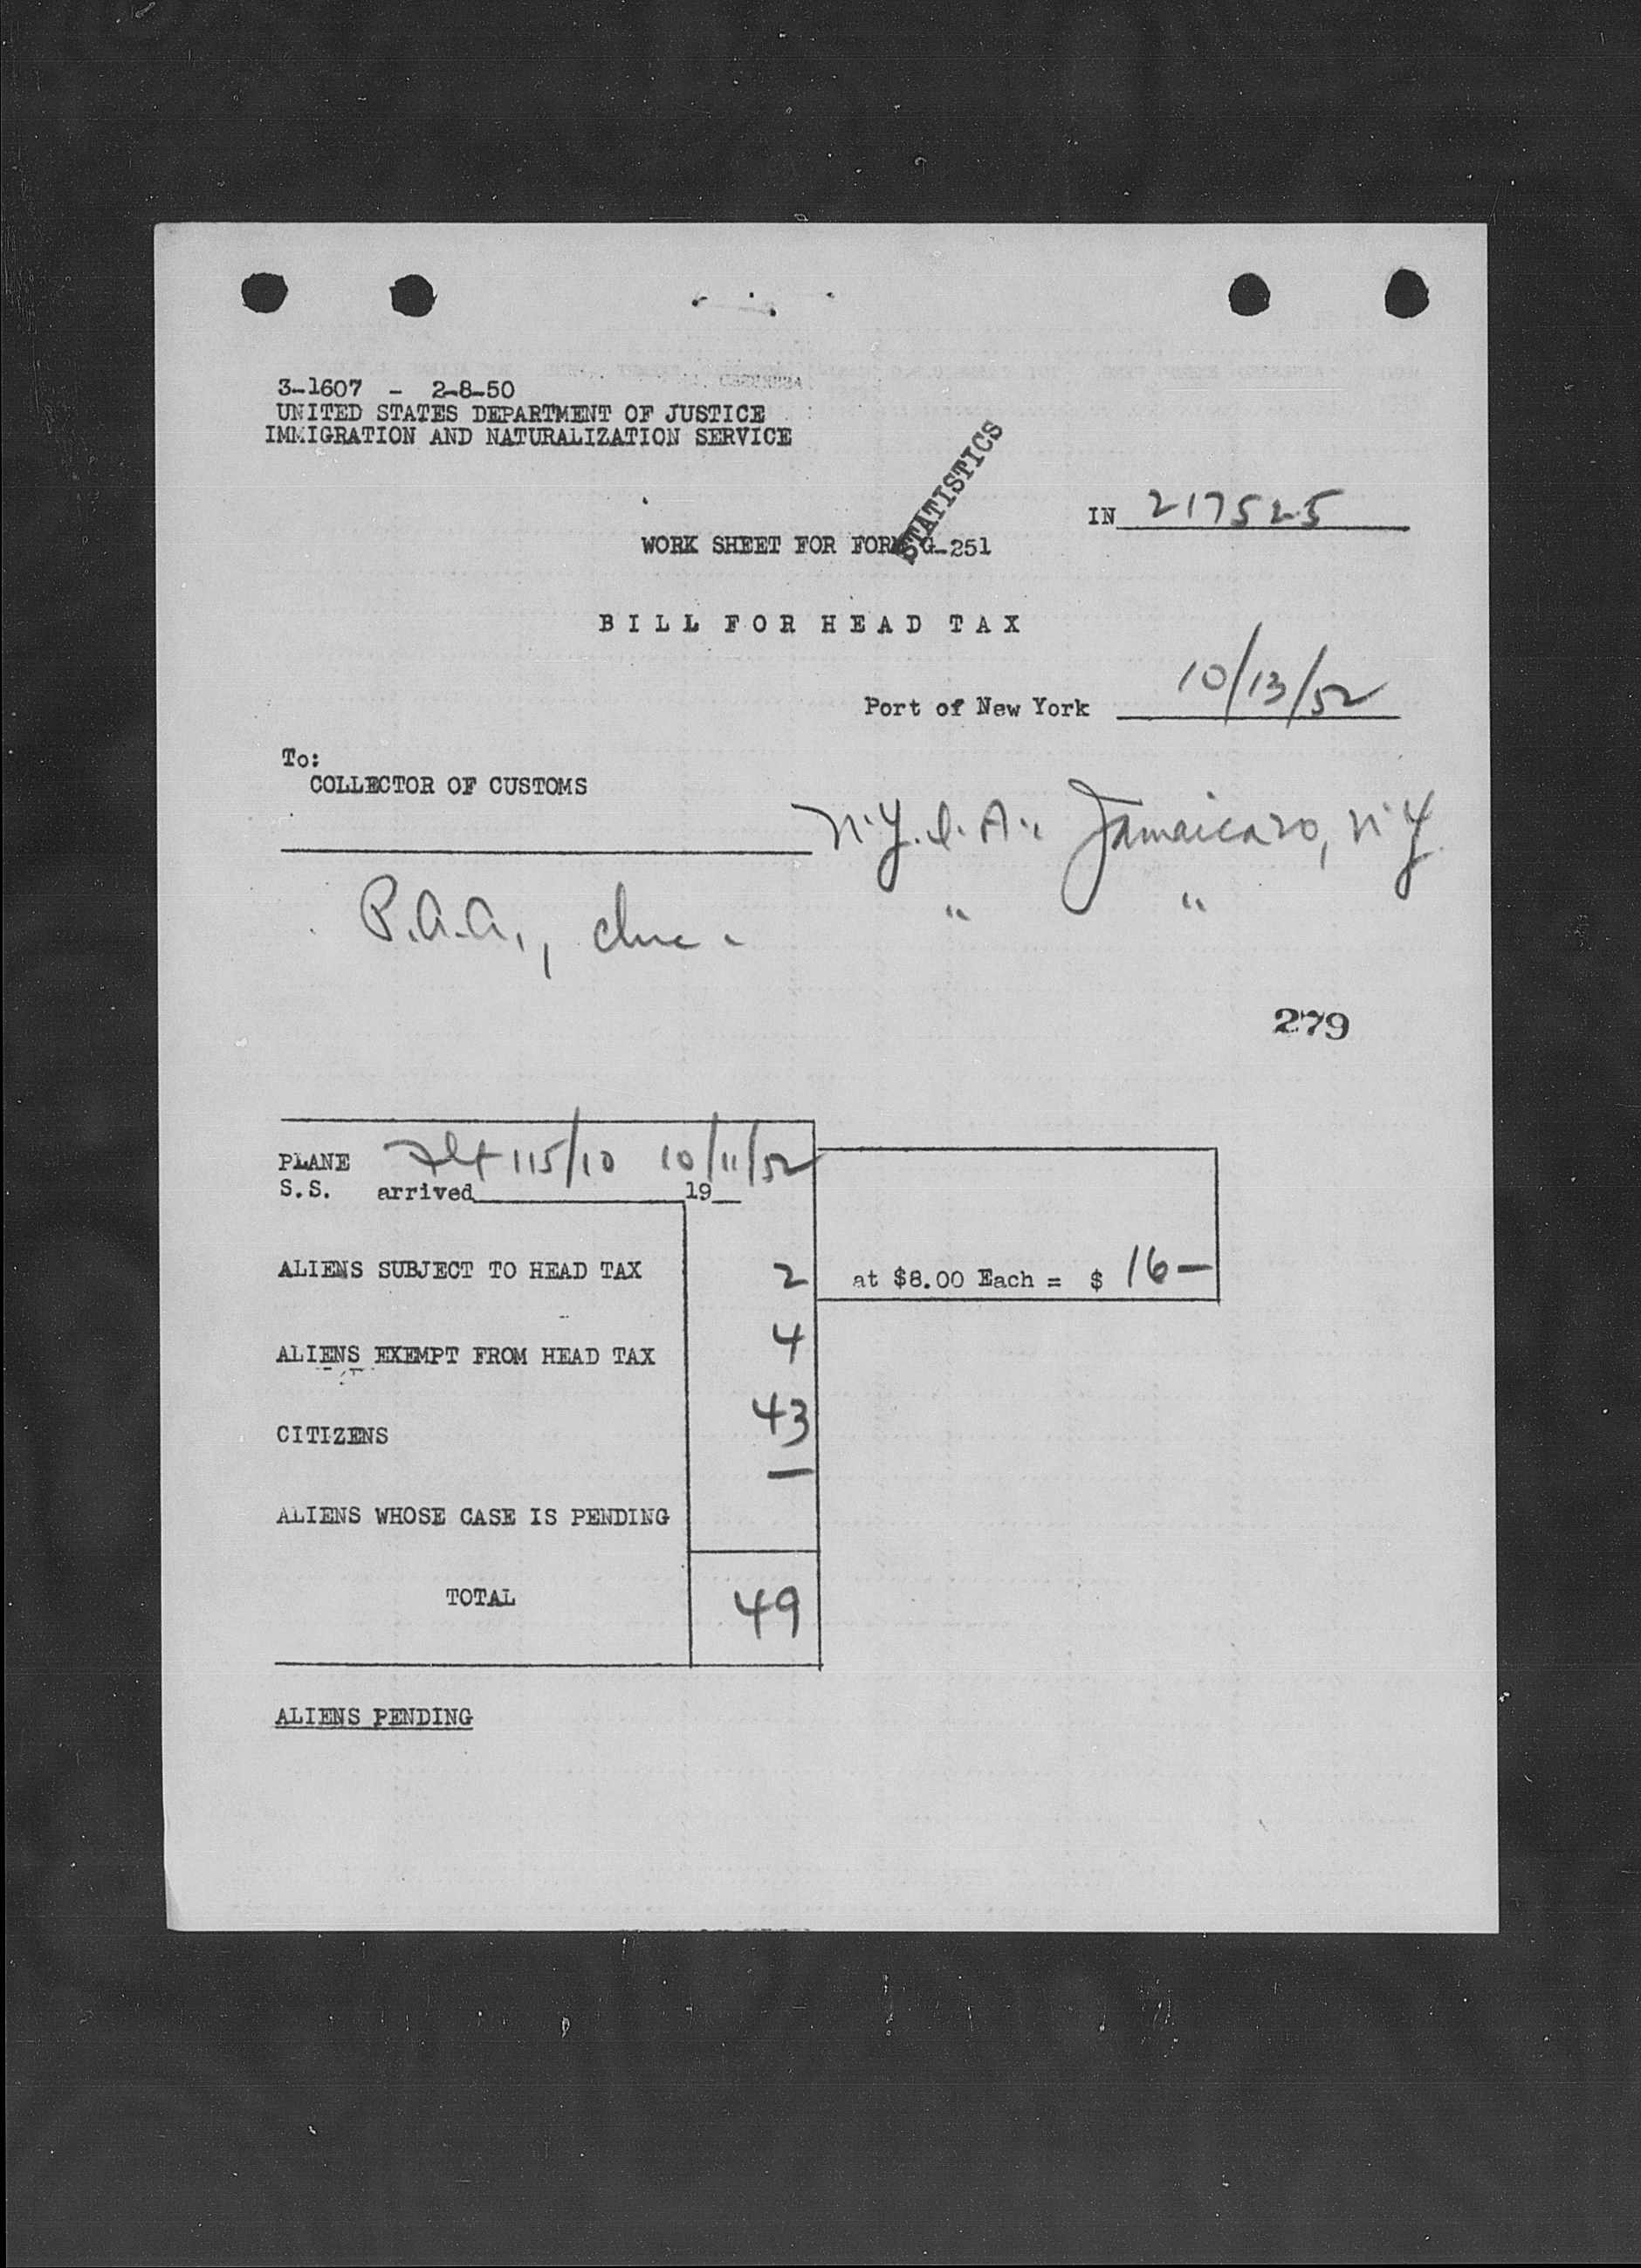 3-1607 - 2-8-50
UNITED STATES DEPARTMENT OF JUSTICE
IMMIGRATION AND NATURALIZATION SERVICE
STATISTICS
IN 217525
WORK SHEET FOR FORM G-251
BILL FOR HEAD TAX
Port of New York 10/13/52
To:
COLLECTOR OF CUSTOMS
N.Y.I.A. Jamaica 30, N.Y.
P.A.A., Inc. " "
279
PLANE Flt 115/10 10/11/52
S.S. arrived 19
ALIENS SUBJECT TO HEAD TAX 2 at $8.00 Each = $ 16-
ALIENS EXEMPT FROM HEAD TAX 4
CITIZENS 43
ALIENS WHOSE CASE IS PENDING —
TOTAL 49
ALIENS PENDING